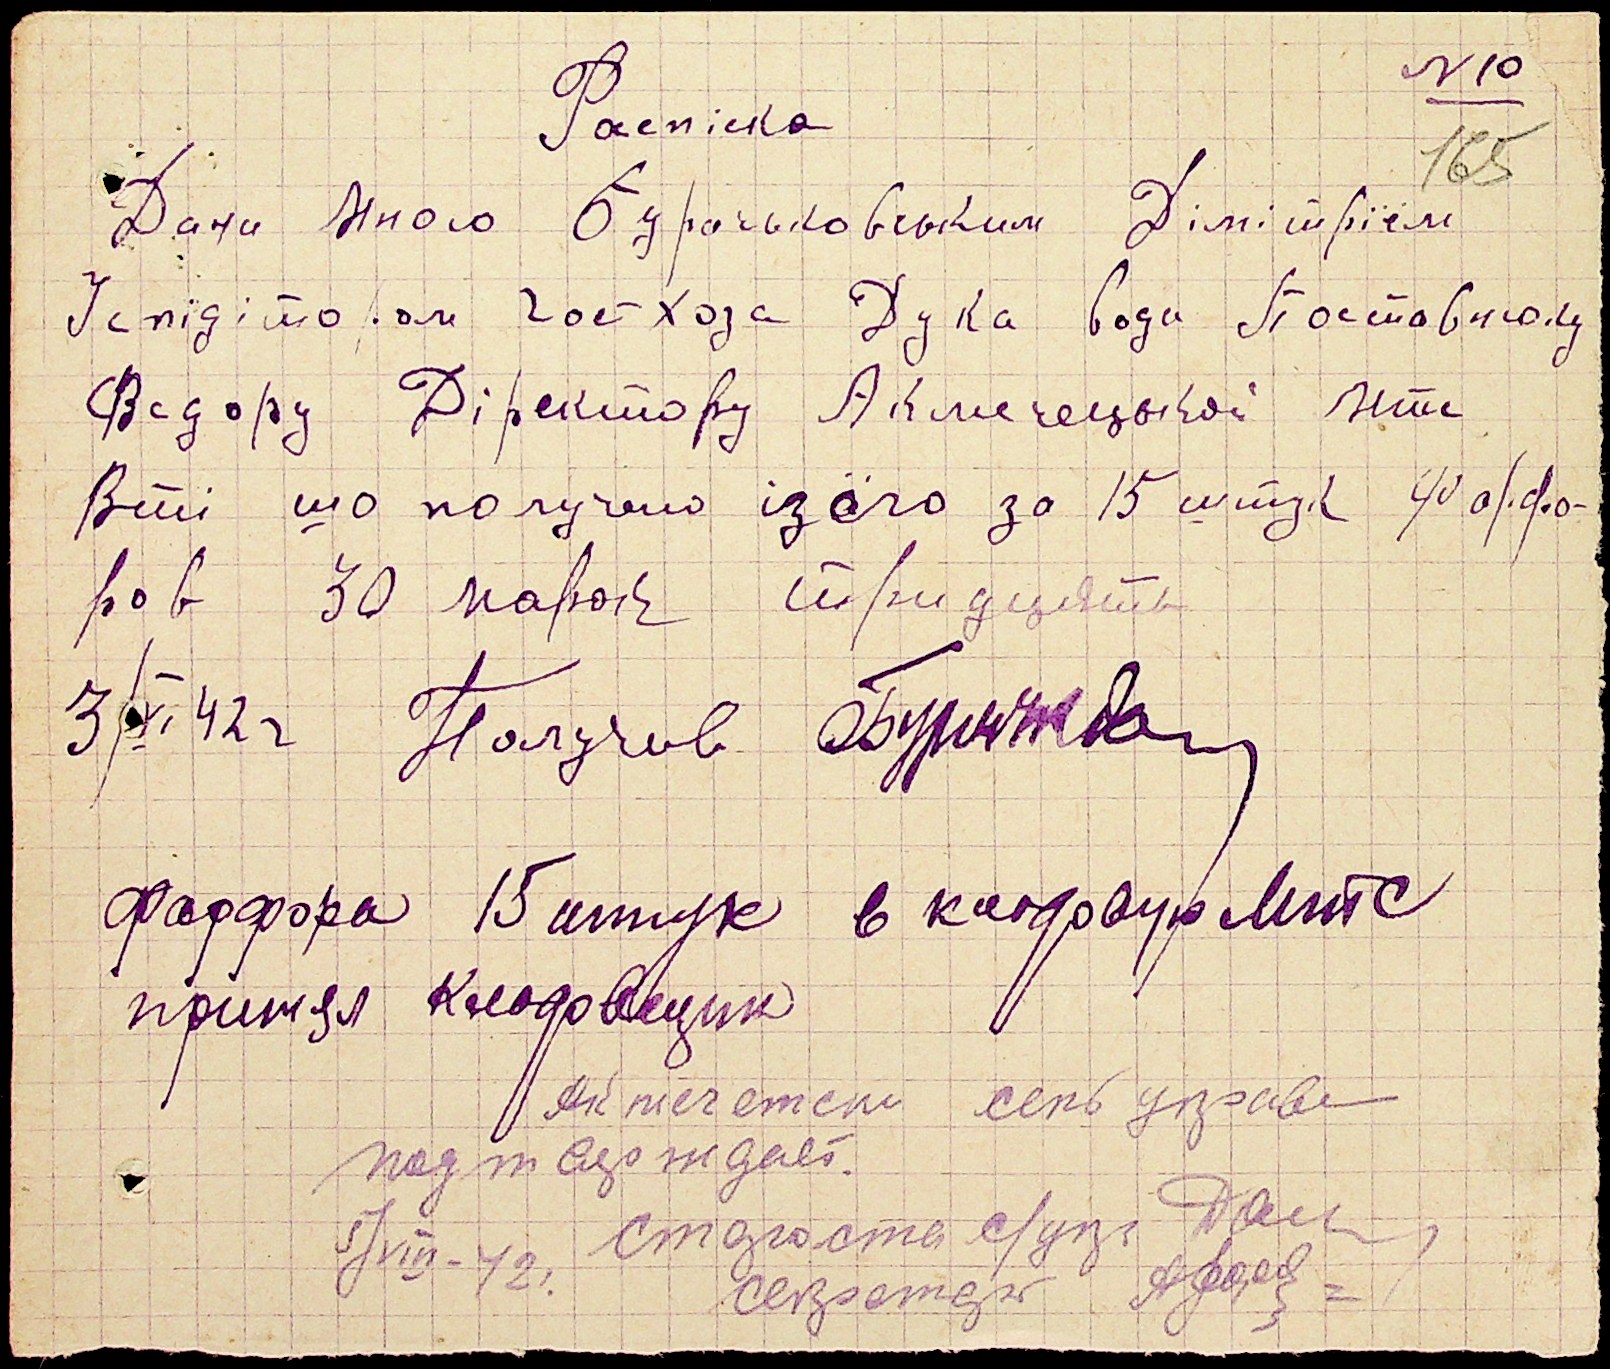 N 10
165
Распіска
Дани мною Бурачьковським Дімітріем
Іспідітором госпхоза Дука води Поставному
Ведору Діректору Акмечецькой мтс
Втті шо получено ізёго за 15 штук фарфо-
ров 30 марок тридцять
3/VI 42 г Получив
фарфора 15 штук в кладовую МТС
принял кладовщик
Акмечетская сель управа
подтверждает.
5/VIII-42. Староста с/упр.
секретарь